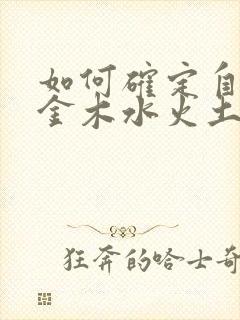 如何確定自
金木水火土
狂奔的哈士奇